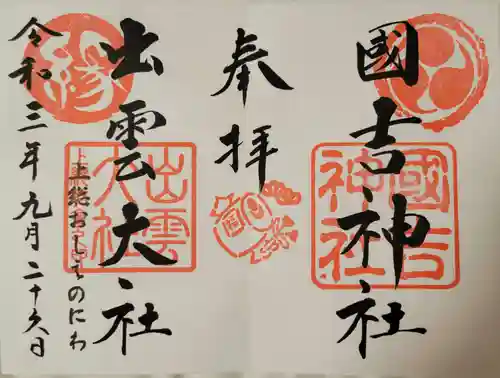 國吉神社
奉拝
出雲大社
上総おしゞそのにわ
令和三年九月二十六日
國吉
神社
出雲
大社
縁